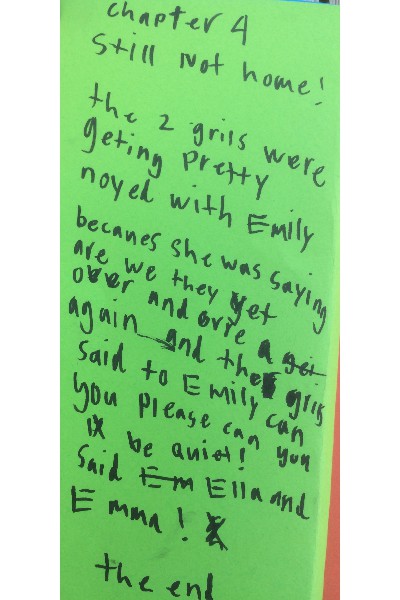 chapter 4
Still Not home!
the 2 grils were
geting Pretty
noyed with Emily
becanes she was saying
are we they yet
over and ovre a gei
again and the grils
said to Emily can
you please can you
be quiet!
Said Em Ella and
Emma!
the end